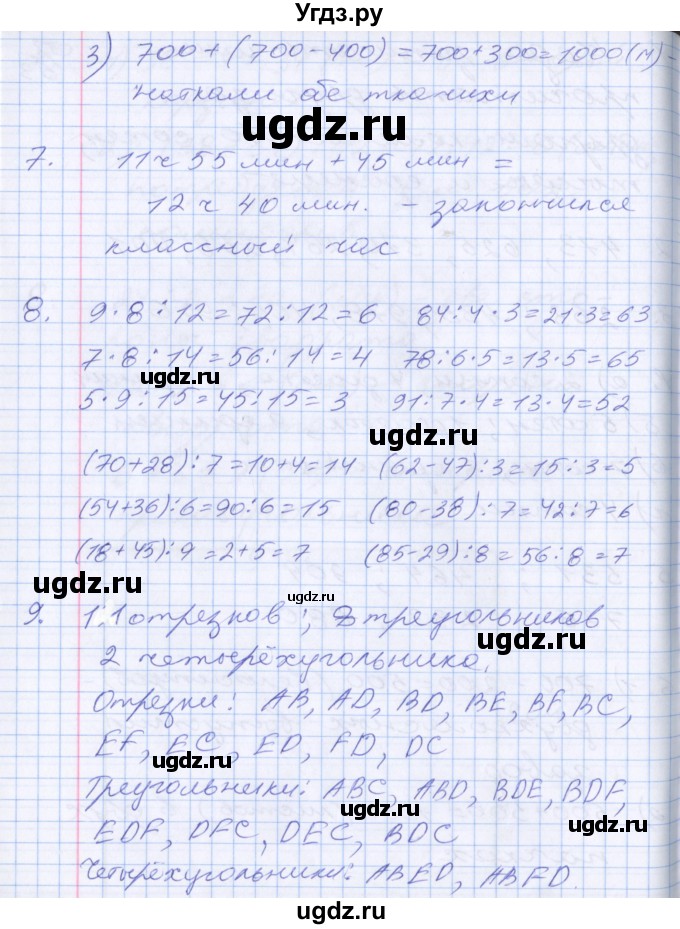 Угдз.ру
3) 700 + (700 - 400) = 700 + 300 = 1000 (м) -
наткали обе ткачихи
ugdz.ru
7. 11 ч 55 мин + 45 мин =
12 ч 40 мин. - закончился
классный час
8. 9 · 8 : 12 = 72 : 12 = 6 84 : 4 · 3 = 21 · 3 = 63
7 · 8 : 14 = 56 : 14 = 4 78 : 6 · 5 = 13 · 5 = 65
ugdz.ru
5 · 9 : 15 = 45 : 15 = 3 91 : 7 · 4 = 13 · 4 = 52
ugdz.ru
(70 + 28) : 7 = 10 + 4 = 14 (62 - 47) : 3 = 15 : 3 = 5
(54 + 36) : 6 = 90 : 6 = 15 (80 - 38) : 7 = 42 : 7 = 6
(18 + 45) : 9 = 2 + 5 = 7 (85 - 29) : 8 = 56 : 8 = 7
ugdz.ru ugdz.ru
9. 11 отрезков; 8 треугольников
ugdz.ru
2 четырёхугольника.
Отрезки: AB, AD, BD, BE, BF, BC,
EF, EC, ED, FD, DC
ugdz.ru
Треугольники: ABC, ABD, BDE, BDF,
ugdz.ru
EDF, DFC, DEC, BDC
Четырёхугольники: ABED, ABFD.
ugdz.ru